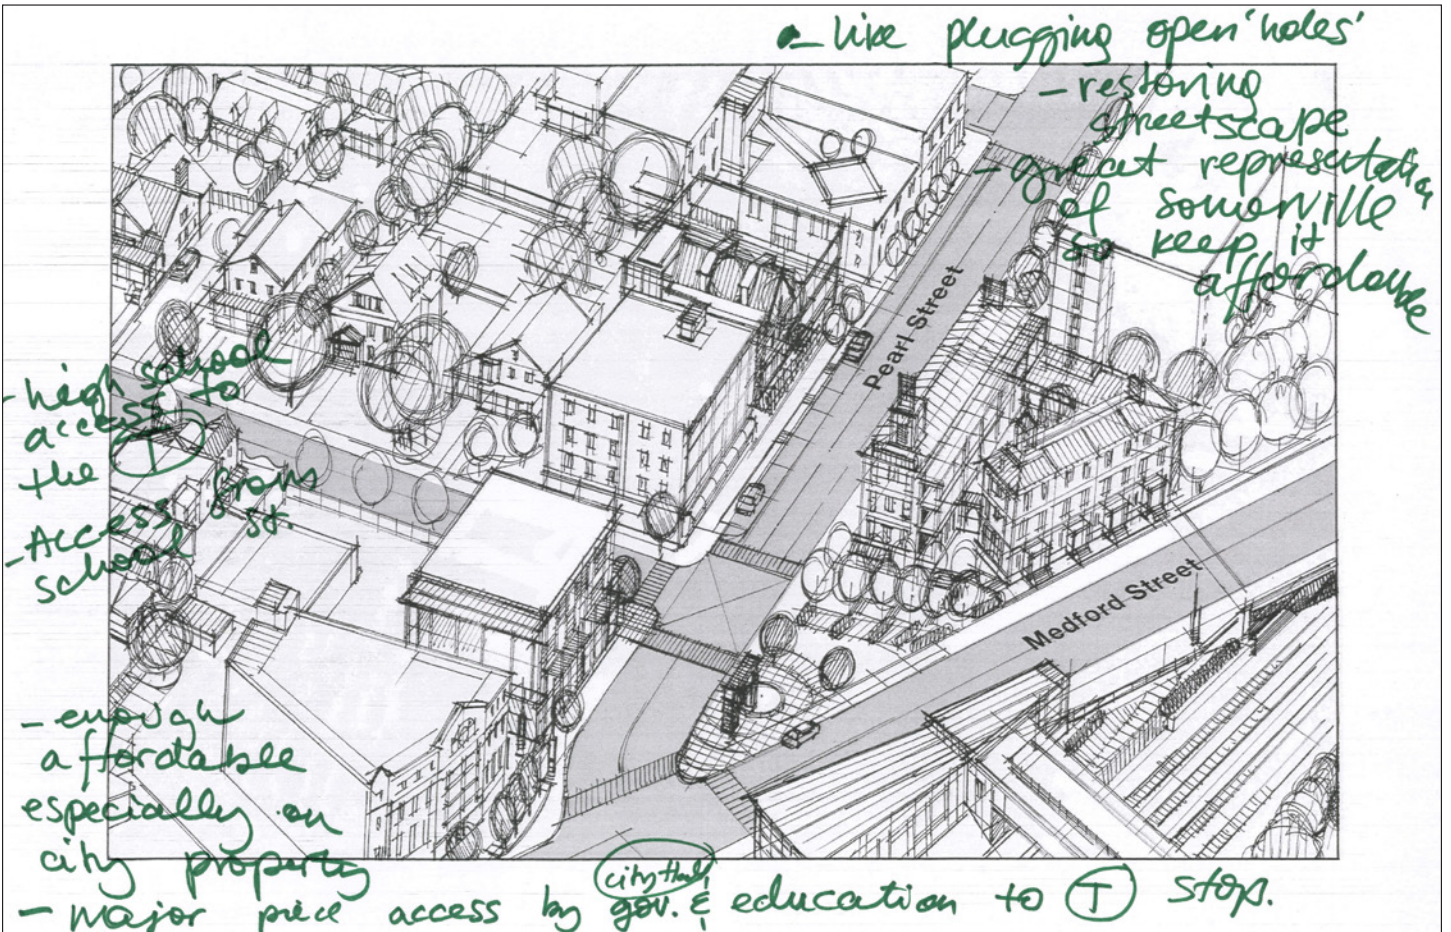 - like plugging open 'holes'
- restoring
streetscape
- great representation
of Somerville
so keep it
affordable
Pearl Street
- high school
access to
the T
- Access from
school st.
Medford Street
- enough
affordable
especially on
city property
city Hall
- major piece access by gov. & education to T stop.